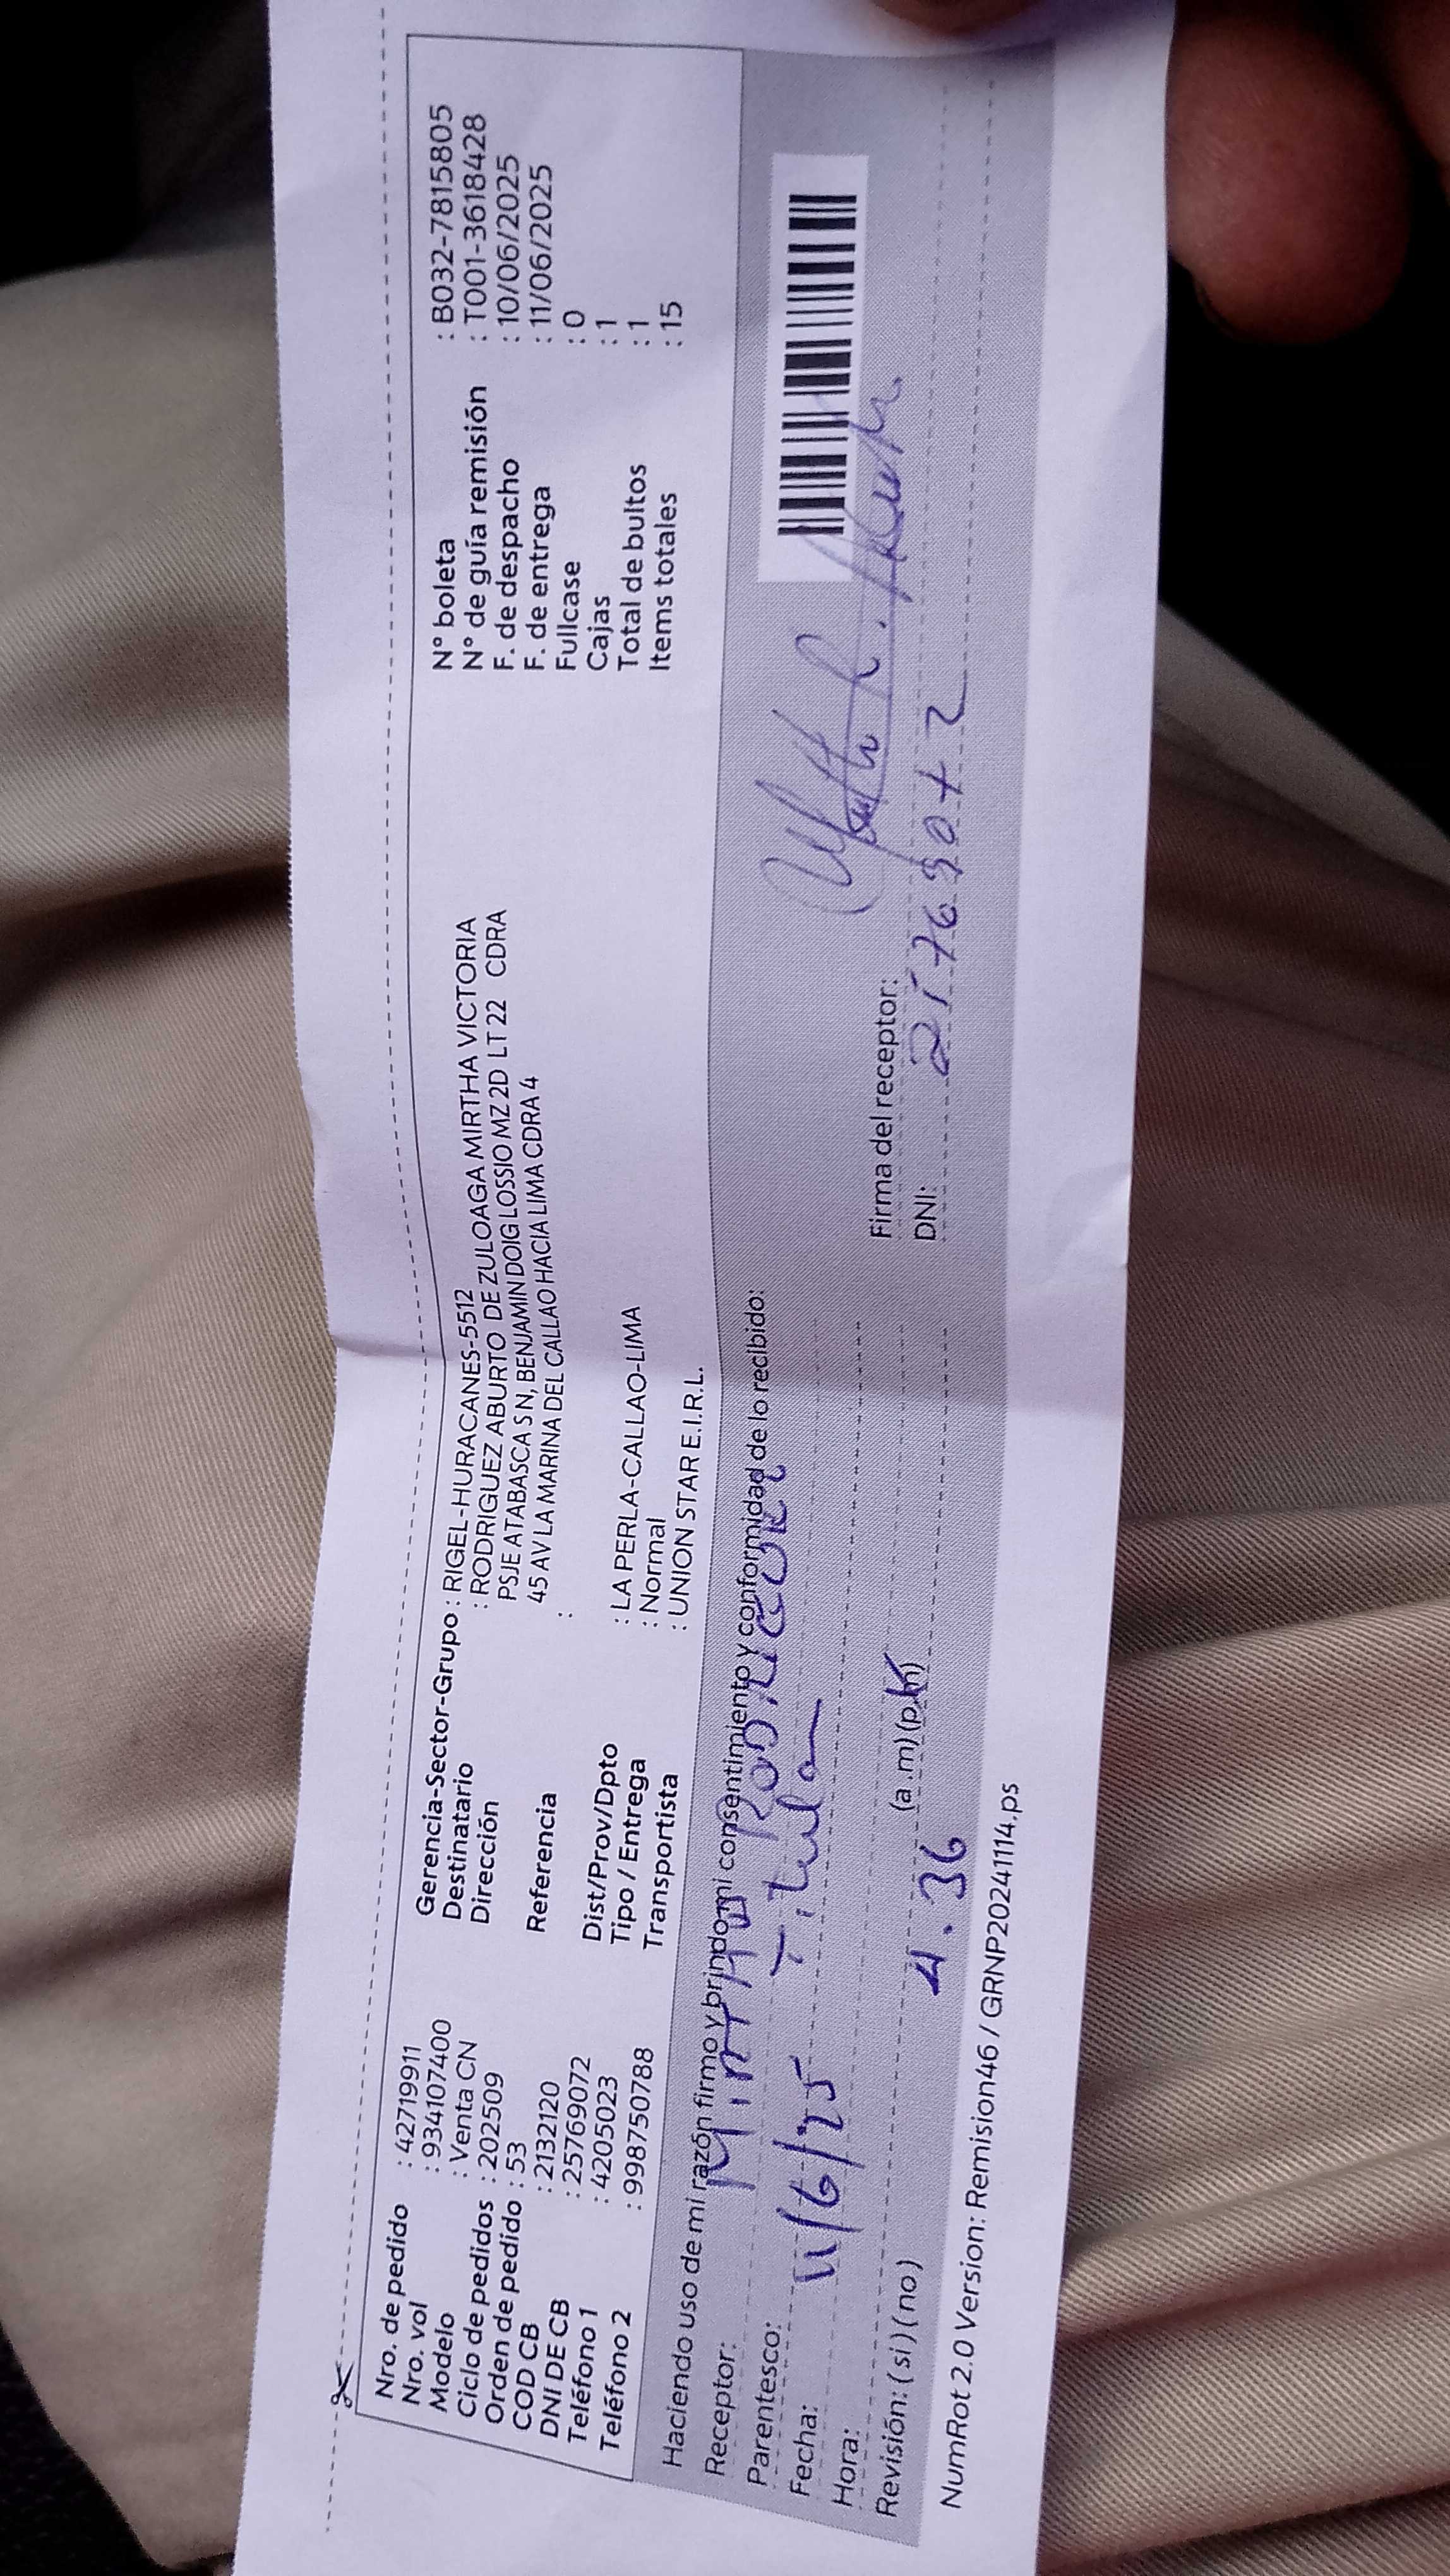 Nro. de pedido : 42719911
Nro. vol : 934107400
Modelo : Venta CN
Ciclo de pedidos : 202509
Orden de pedido : 53
COD CB : 2132120
DNI DE CB : 25769072
Teléfono 1 : 4205023
Teléfono 2 : 998750788
Gerencia-Sector-Grupo : RIGEL-HURACANES-5512
Destinatario : RODRIGUEZ ABURTO DE ZULOAGA MIRTHA VICTORIA
Dirección PSJE ATABASCA S N, BENJAMIN DOIG LOSSIO MZ 2D LT 22 CDRA
45 AV LA MARINA DEL CALLAO HACIA LIMA CDRA 4
Referencia :
Dist/Prov/Dpto : LA PERLA-CALLAO-LIMA
Tipo / Entrega : Normal
Transportista : UNION STAR E.I.R.L.
N° boleta : B032-7815805
N° de guía remisión : T001-3618428
F. de despacho : 10/06/2025
F. de entrega : 11/06/2025
Fullcase : 0
Cajas : 1
Total de bultos : 1
Items totales : 15
Haciendo uso de mi razón firmo y brindo mi consentimiento y conformidad de lo recibido:
Receptor: Mirtha Rodriguez
Parentesco: Titular
Fecha: 11/6/25
Hora: 4.36 (a.m)(p.m)
Revisión: (si)(no)
Firma del receptor:
DNI: 25769072
NumRot 2.0 Version: Remision46 / GRNP20241114.ps